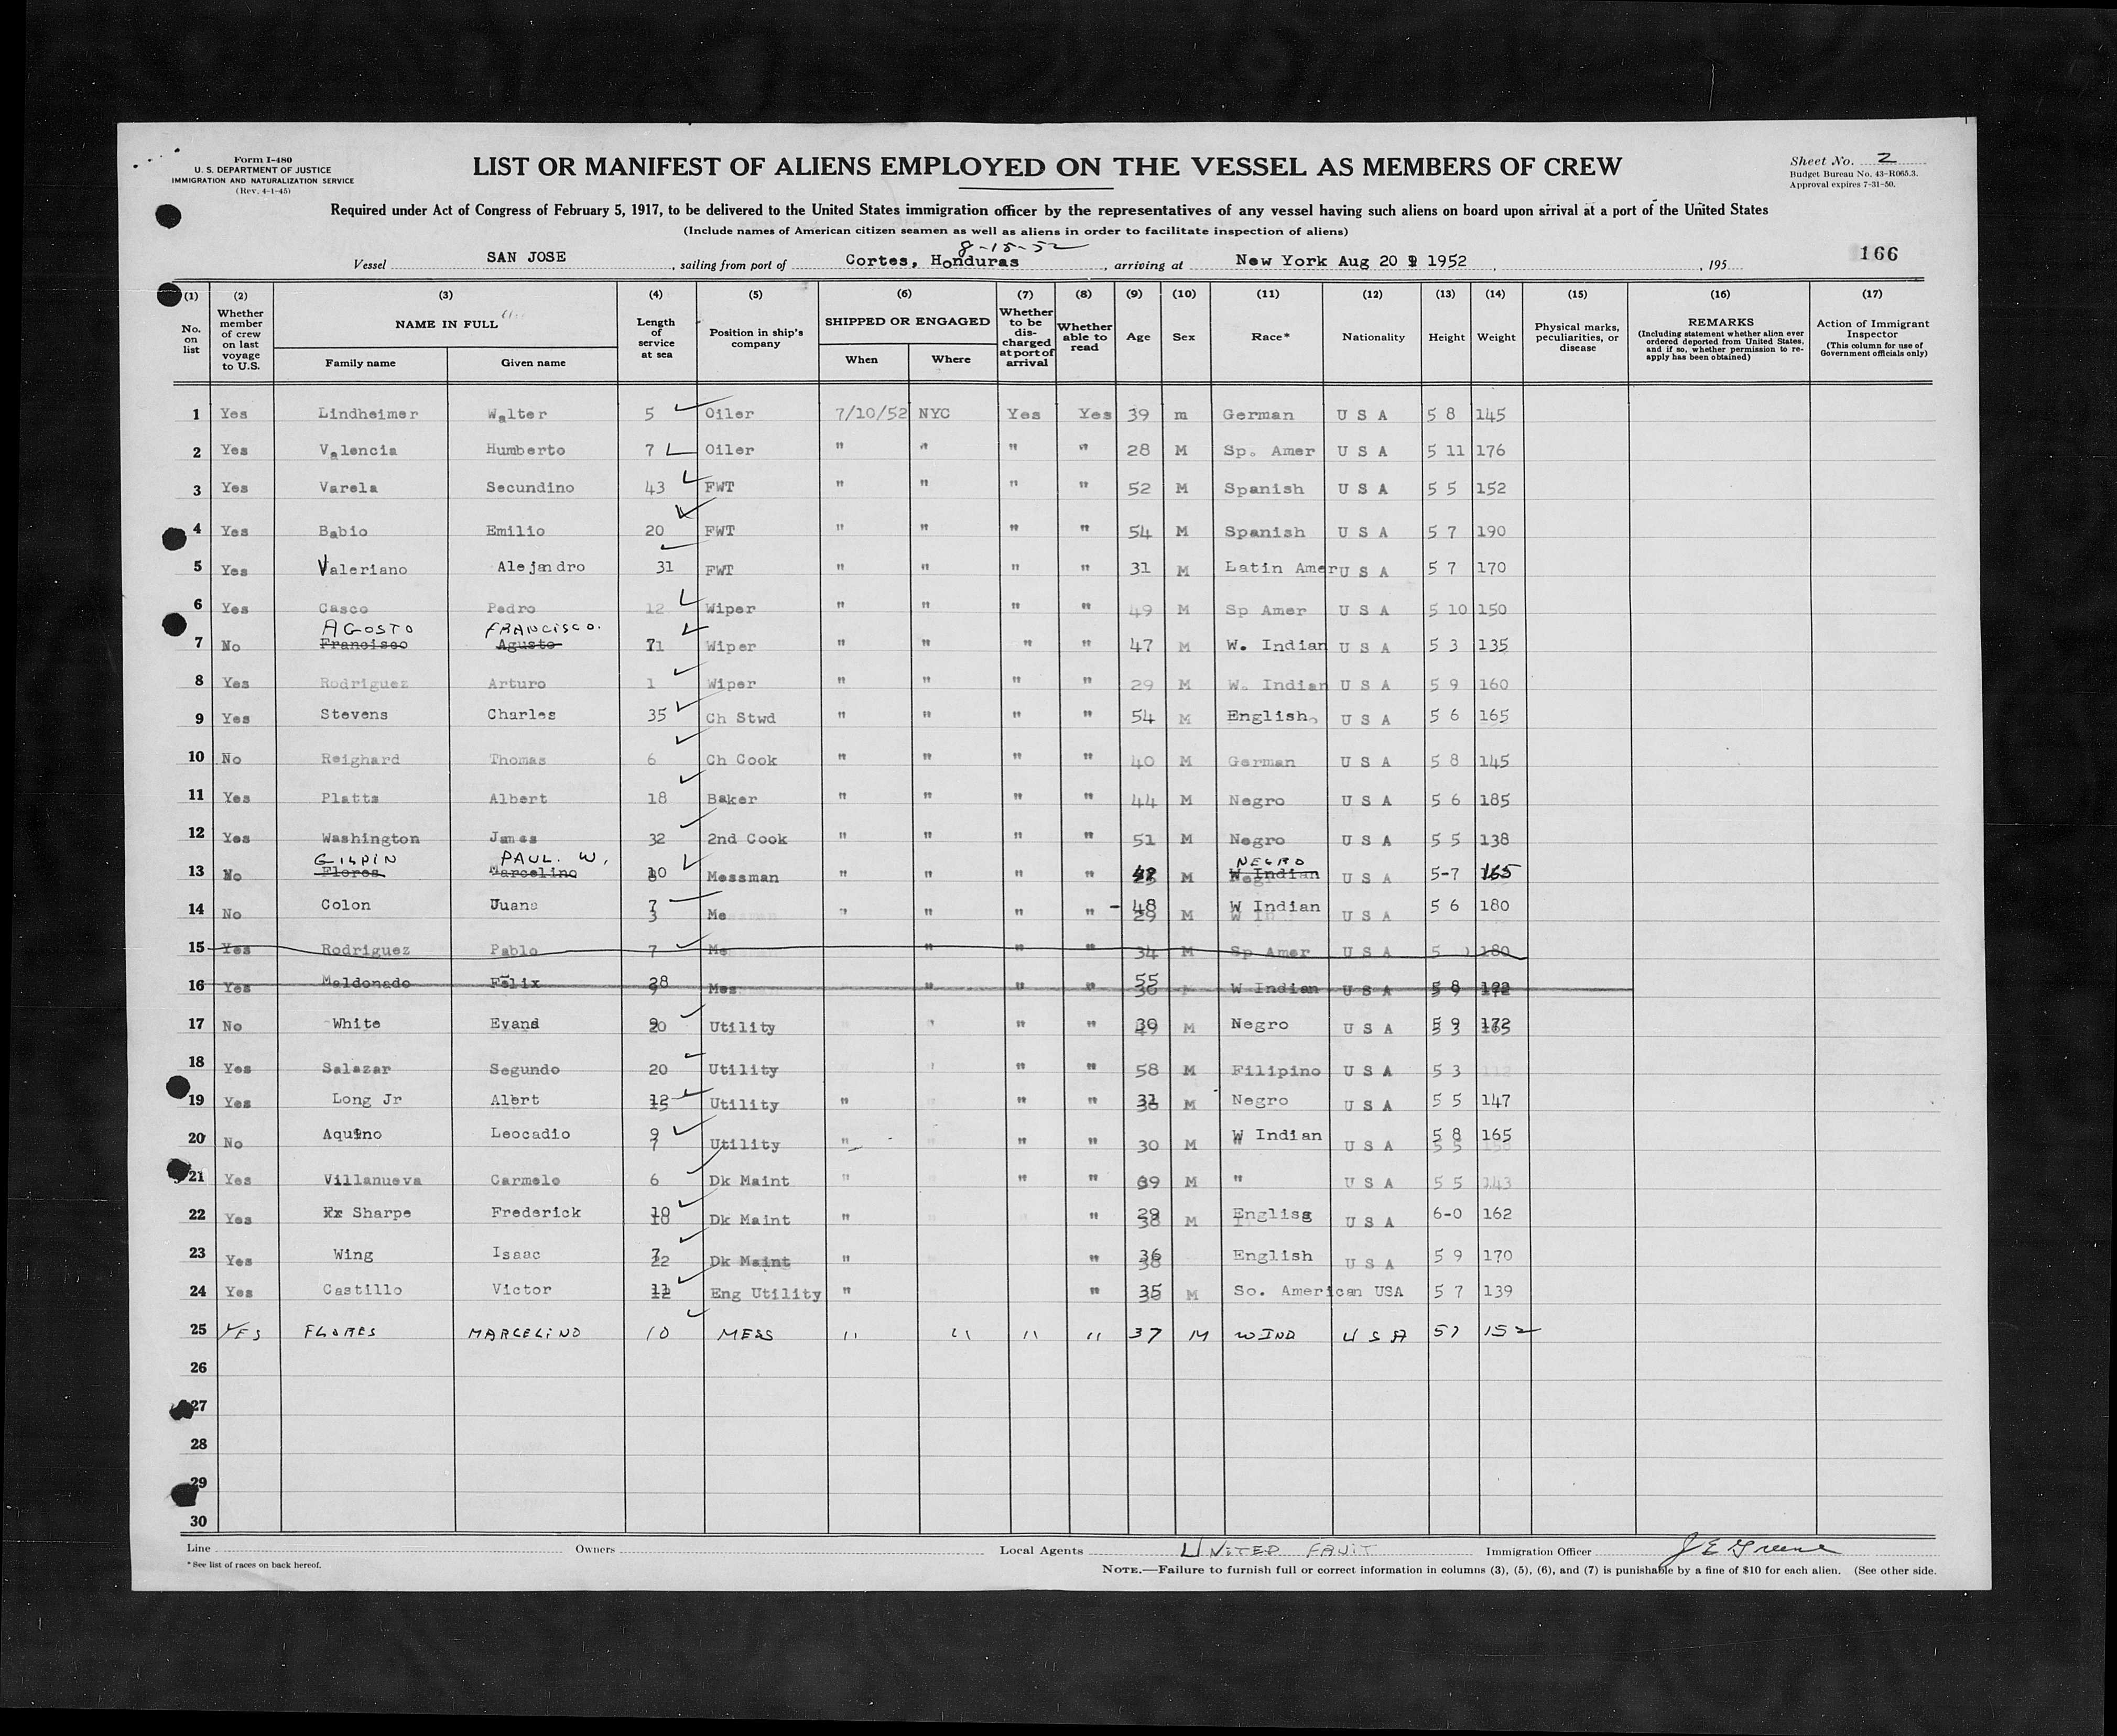 Form I-480
U. S. DEPARTMENT OF JUSTICE
IMMIGRATION AND NATURALIZATION SERVICE
(Rev. 4-1-45)
LIST OR MANIFEST OF ALIENS EMPLOYED ON THE VESSEL AS MEMBERS OF CREW
Sheet No. 2
Budget Bureau No. 43-R065.3.
Approval expires 7-31-50.
Required under Act of Congress of February 5, 1917, to be delivered to the United States immigration officer by the representatives of any vessel having such aliens on board upon arrival at a port of the United States
(Include names of American citizen seamen as well as aliens in order to facilitate inspection of aliens)
8-15-52
166
Vessel SAN JOSE , sailing from port of Cortes, Honduras , arriving at New York Aug 20 1952 , 195
(1) (2) (3) (4) (5) (6) (7) (8) (9) (10) (11) (12) (13) (14) (15) (16) (17)
No. on list
Whether member of crew on last voyage to U.S.
NAME IN FULL
Family name
Given name
Length of service at sea
Position in ship's company
SHIPPED OR ENGAGED
When
Where
Whether to be discharged at port of arrival
Whether able to read
Age
Sex
Race*
Nationality
Height
Weight
Physical marks, peculiarities, or disease
REMARKS
(Including statement whether alien ever ordered deported from United States, and if so, whether permission to reapply has been obtained)
Action of Immigrant Inspector
(This column for use of Government officials only)
1 Yes Lindheimer Walter 5 Oiler 7/10/52 NYC Yes Yes 39 m German U S A 5 8 145
2 Yes Valencia Humberto 7 Oiler " " " " 28 M Sp. Amer U S A 5 11 176
3 Yes Varela Secundino 43 FWT " " " " 52 M Spanish U S A 5 5 152
4 Yes Babio Emilio 20 FWT " " " " 54 M Spanish U S A 5 7 190
5 Yes Valeriano Alejandro 31 FWT " " " " 31 M Latin Amer U S A 5 7 170
6 Yes Casco Pedro 12 Wiper " " " " 49 M Sp Amer U S A 5 10 150
AGOSTO FRANCISCO.
7 No Francisco Agusto Wiper " " " " 47 M W. Indian U S A 5 3 135
8 Yes Rodriguez Arturo 1 Wiper " " " " 29 M W. Indian U S A 5 9 160
9 Yes Stevens Charles 35 Ch Stwd " " " " 54 M English. U S A 5 6 165
10 No Reighard Thomas 6 Ch Cook " " " " 40 M German U S A 5 8 145
11 Yes Platts Albert 18 Baker " " " " 44 M Negro U S A 5 6 185
12 Yes Washington James 32 2nd Cook " " " " 51 M Negro U S A 5 5 138
GILPIN PAUL. W. NEGRO
13 No Flores Marcelino Messman " " " " M W Indian U S A 5-7 165
14 No Colon Juana 7 Me " " " " 48 M W Indian U S A 5 6 180
15 Yes Rodriguez Pablo 7 Me " " " 34 M Sp Amer U S A 5 180
16 Yes Maldonado Felix 28 Mes " " " 55 W Indian U S A 5 8
17 No White Evans Utility " " " 30 M Negro U S A 5 9 172
18 Yes Salazar Segundo 20 Utility " " " 58 M Filipino U S A 5 3 112
19 Yes Long Jr Albert Utility " " " M Negro U S A 5 5 147
20 No Aquino Leocadio 9 Utility " " " 30 M W Indian U S A 5 8 165
21 Yes Villanueva Carmelo 6 Dk Maint " " " M " U S A 5 5 143
22 Yes Sharpe Frederick Dk Maint " " 29 M Englisg U S A 6-0 162
23 Yes Wing Isaac 7 Dk Maint " " 36 English U S A 5 9 170
24 Yes Castillo Victor Eng Utility " " 35 M So. American USA 5 7 139
25 YES FLORES MARCELINO 10 MESS " " " " 37 M W IND U S A 57 152
26
27
28
29
30
Line Owners Local Agents UNITED FRUIT Immigration Officer J E Greene
* See list of races on back hereof.
NOTE.—Failure to furnish full or correct information in columns (3), (5), (6), and (7) is punishable by a fine of $10 for each alien. (See other side.